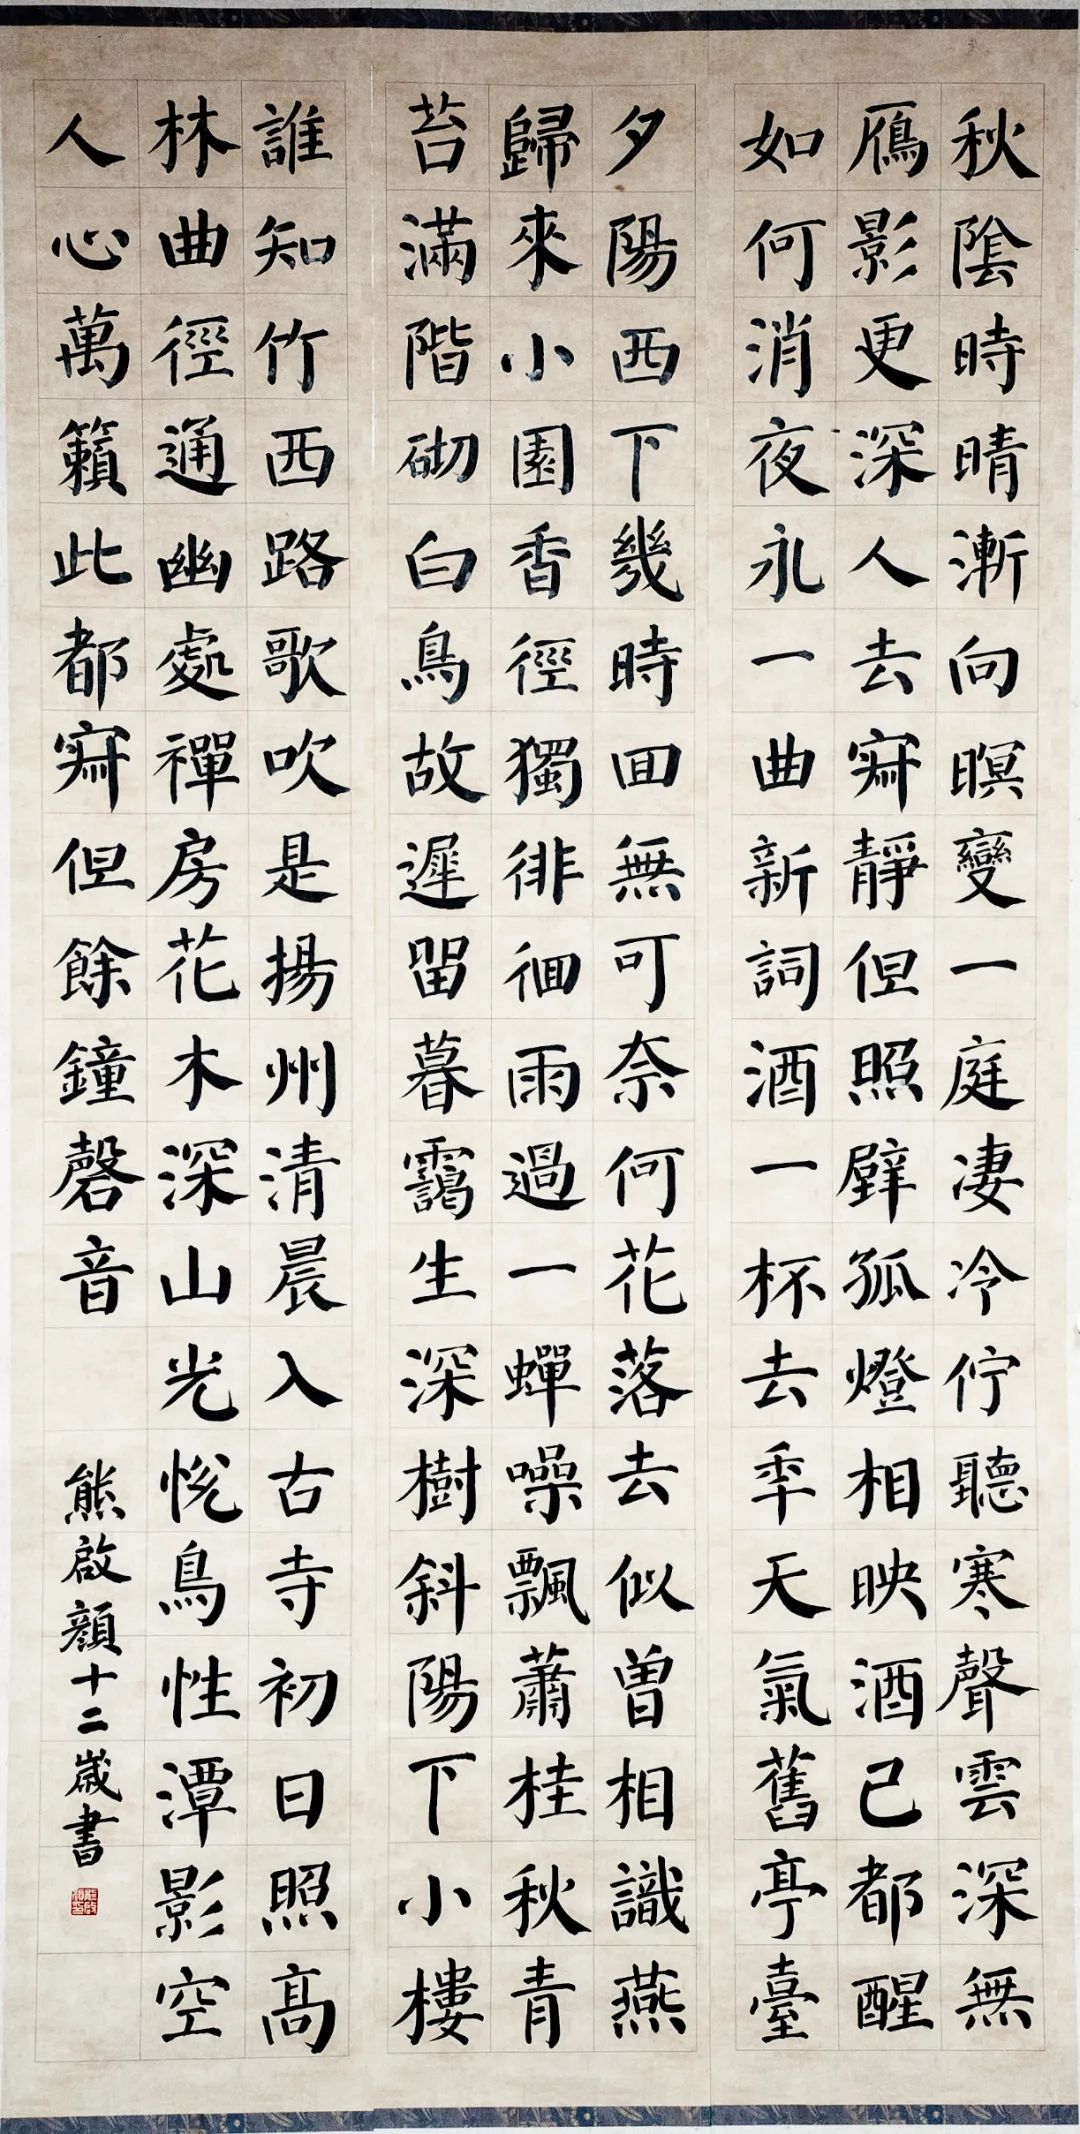 秋陰時晴漸向暝變一庭凄冷佇聽寒聲雲深無
鴈影更深人去寂靜但照壁孤燈相映酒已都醒
如何消夜永一曲新詞酒一杯去年天氣舊亭臺
夕陽西下幾時回無可奈何花落去似曾相識燕
歸來小園香徑獨徘徊雨過一蟬噪飄蕭桂秋青
苔滿階砌白鳥故遲留暮靄生深樹斜陽下小樓
誰知竹西路歌吹是揚州清晨入古寺初日照髙
林曲徑通幽處禪房花木深山光悅鳥性潭影空
人心萬籟此都寂但餘鐘磬音
熊啟顏十二歲書